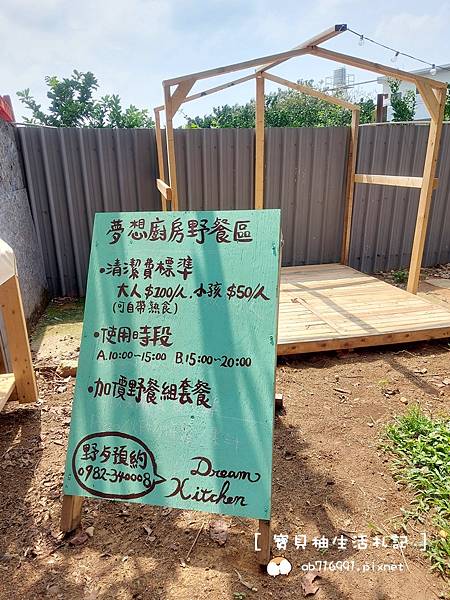 夢想廚房野餐區
•清潔費標準
大人$100/人.小孩$50/人
(可自帶熟食)
•使用時段
A.10:00~15:00 B.15:00~20:00
•加價野餐組套餐
野夕預約
0982-340008
Dream
Kitchen
[ 寶貝柚生活札記. ]
ab716991.pixnet